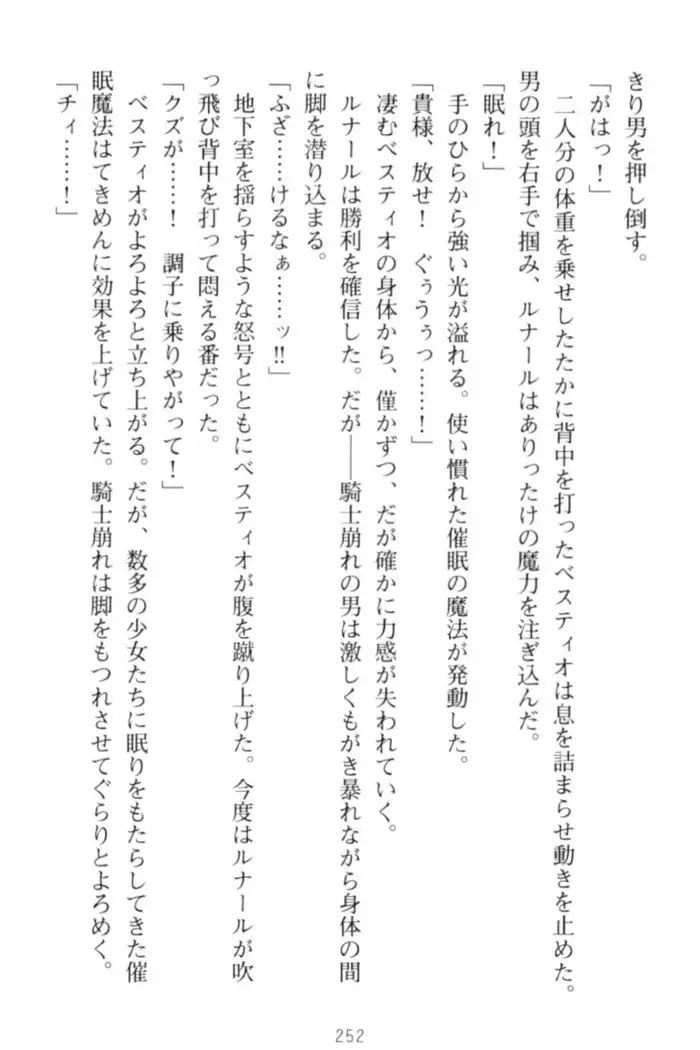 きり男を押し倒す。
「がはっ！」
　二人分の体重を乗せしたたかに背中を打ったベスティオは息を詰まらせ動きを止めた。
男の頭を右手で掴み、ルナールはありったけの魔力を注ぎ込んだ。
「眠れ！」
　手のひらから強い光が溢れる。使い慣れた催眠の魔法が発動した。
「貴様、放せ！　ぐぅうぅっ……！」
　凄むベスティオの身体から、僅かずつ、だが確かに力感が失われていく。
　ルナールは勝利を確信した。だが――騎士崩れの男は激しくもがき暴れながら身体の間
に脚を潜り込まる。
「ふざ……けるなぁ……ッ‼」
　地下室を揺らすような怒号とともにベスティオが腹を蹴り上げた。今度はルナールが吹
っ飛び背中を打って悶える番だった。
「クズが……！　調子に乗りやがって！」
　ベスティオがよろよろと立ち上がる。だが、数多の少女たちに眠りをもたらしてきた催
眠魔法はてきめんに効果を上げていた。騎士崩れは脚をもつれさせてぐらりとよろめく。
「チィ……！」
252